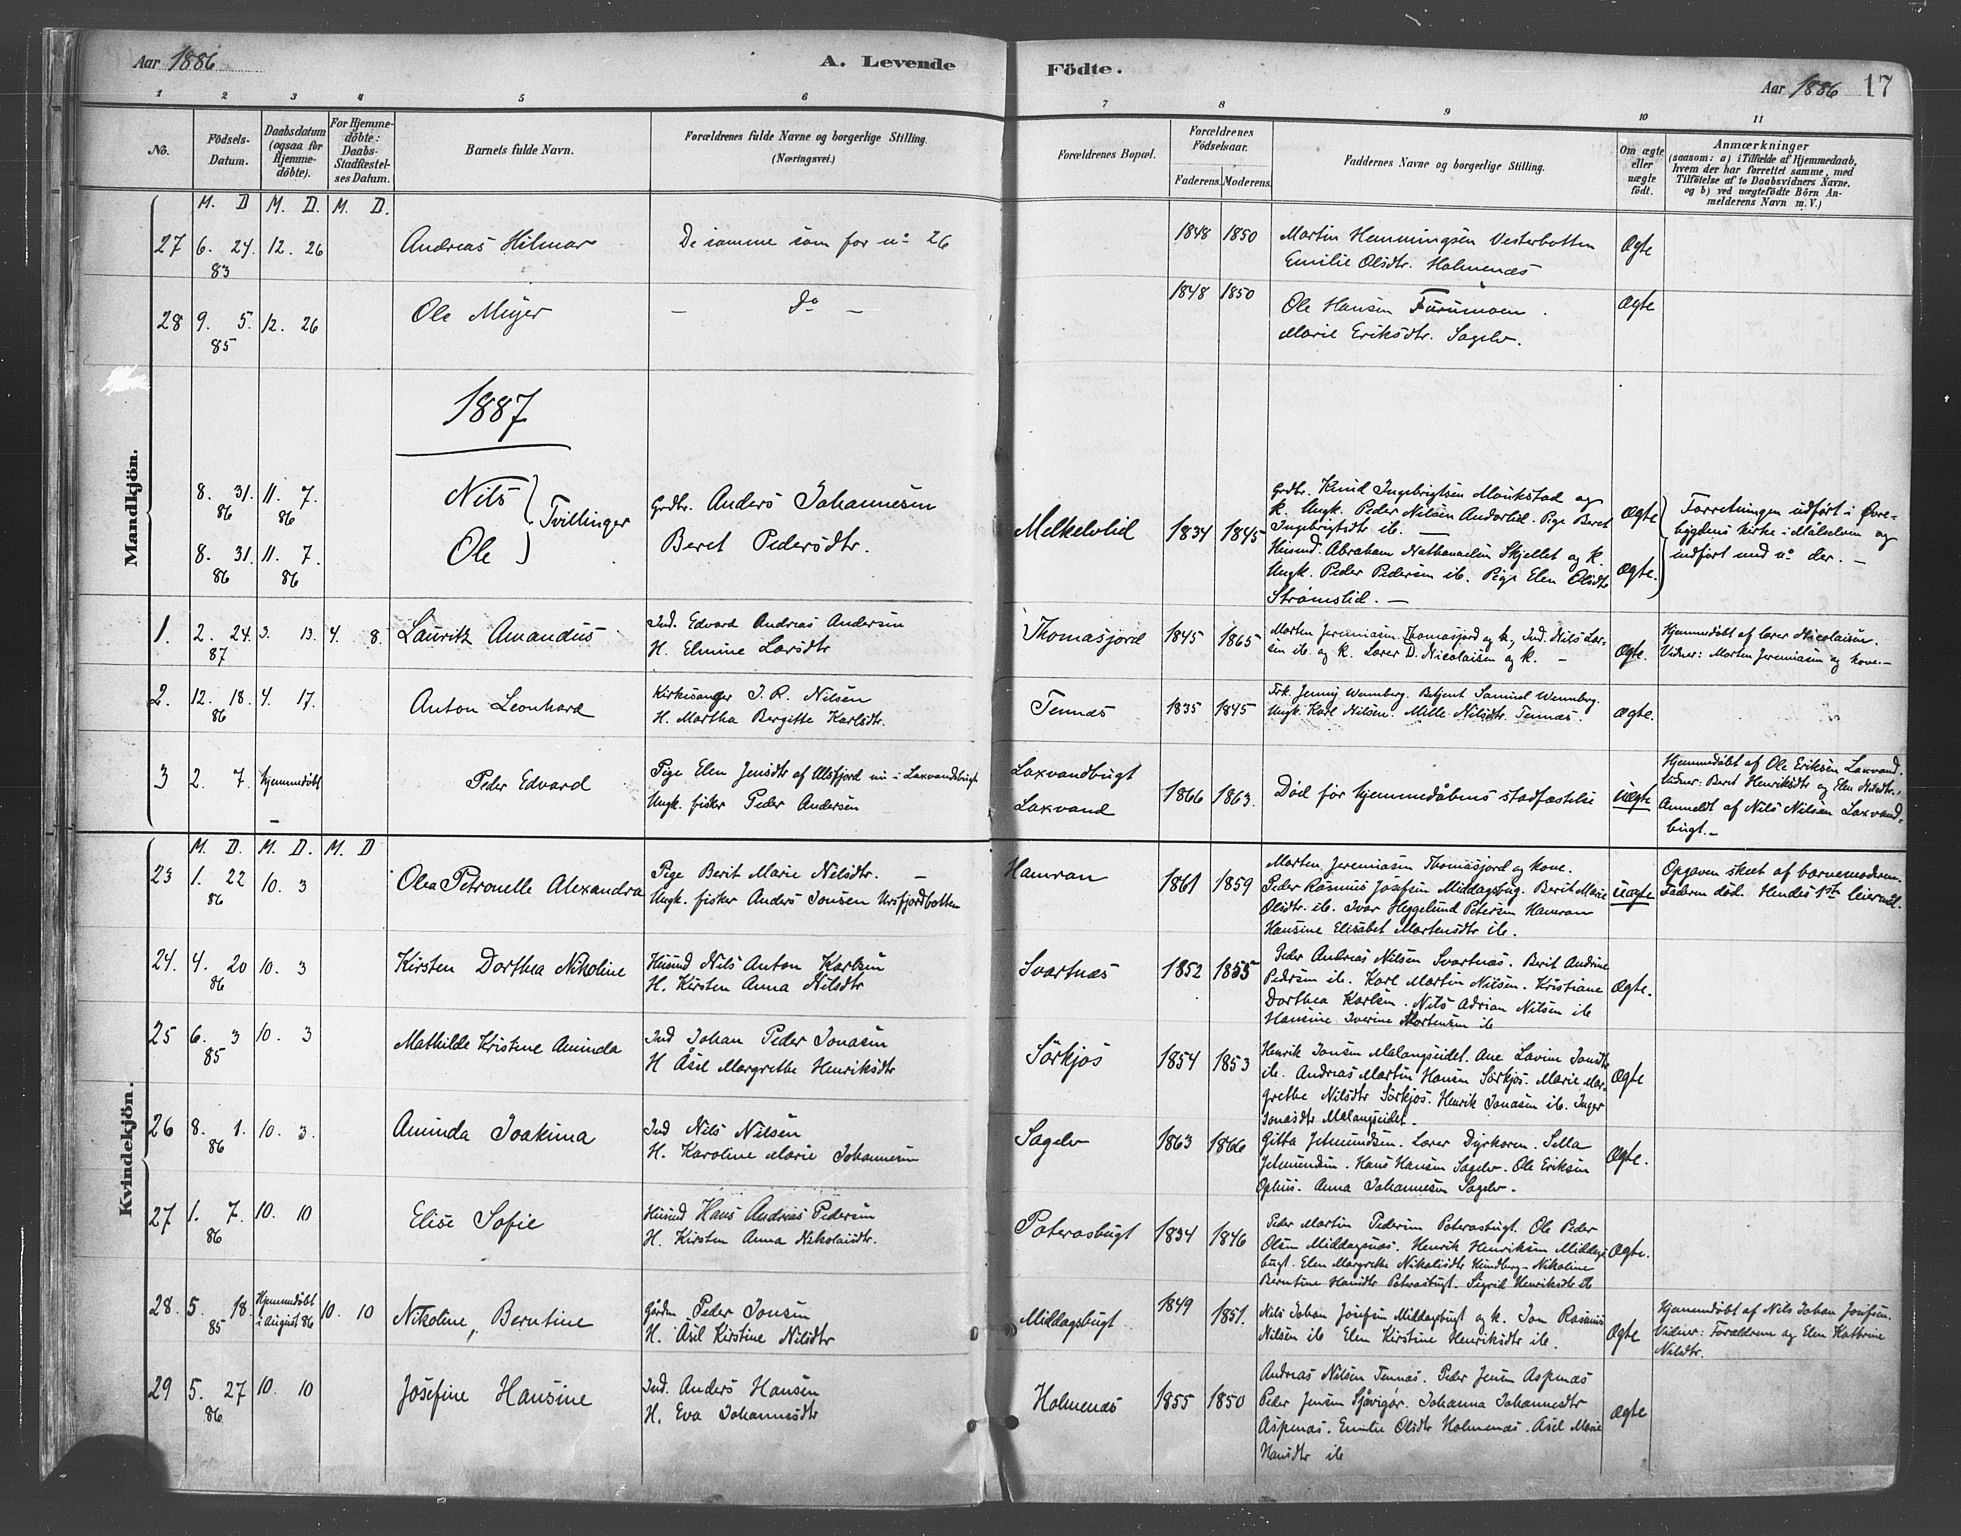 Aar 1886.
A. Levende Födte.
Aar 1886 17
1 2 3 4 5 6 7 8 9 10 11
No.
Födsels-Datum.
Daabsdatum (ogsaa for Hjemme-döbte).
For Hjemme-döbte: Daabs-Stadfæstel-ses Datum.
Barnets fulde Navn.
Forældrenes fulde Navne og borgerlige Stilling. (Næringsvei.)
Forældrenes Bopæl.
Forældrenes Födselsaar.
Faderens. Moderens.
Faddernes Navne og borgerlige Stilling.
Om ægte eller uægte födt.
Anmærkninger
(saasom: a) i Tilfælde af Hjemmedaab,
hvem der har forrettet samme, med
Tilföielse af to Daabsvidners Navne,
og b) ved uægtefödte Börn An-
melderens Navn m. V.)
Mandkjön.
M. D M. D. M. D.
27 6. 24. 83 12. 26 Andreas Hilmar De samme som for nº 26 1848 1850 Martin Hemmingsen Vesterbotten
Emilie Olsdtr. Holmenæs Ægte
28 9. 5. 85 12. 26 Ole Meyer — Dº — 1848 1850 Ole Hansen Furumoen.
Marie Eriksdtr. Sagelv. Ægte
1887
8. 31. 86 11. 7. 86 Nils } Tvillinger Grdbr. Anders Johannesen
8. 31. 86 11. 7. 86 Ole Beret Pedersdtr.
Melkelvlid 1834 1845
Grdbr. Knud Ingebrigtsen Moukstad og
k. Ungk. Peder Nilsen Andorlid. Pige Beret
Ingebrigtsdtr. ib. —
Husmd. Abraham Nathanaelsen Skjellet og k.
Ungk. Peder Pedersen ib. Pige Elen Olsdtr
Strømslid. —
Ægte
Ægte.
Forretningen udført i Øvre-
bygdens kirke i Målselven og
indført med nº der. —
1. 2. 24. 87 3. 13. 4. 8. Lauritz Amandus Ind. Edvard Andreas Andersen
H. Elmine Larsdtr Thomasjord 1845 1865
Morten Jeremiasen Thomasjord og k, Ind. Nils Lar-
sen ib. og k. Lærer D. Nicolaisen og k. — Ægte.
Hjemmedøbt af lærer Nicolaisen.
Vidner: Morten Jeremiasen og kone.—
2. 12. 18. 86 4. 17. Anton Leonhard Kirkesanger I. R. Nilsen
H. Martha Bergitte Karlsdtr. Tennæs 1835 1845
Frk. Jenny Wennberg. Betjent Samuel Wennberg.
Ungk. Karl Nilsen. Mille Nilsdtr. Tennæs. Ægte.
3 2. 7. hjemmedøbt — Peder Edvard Pige Elen Jensdtr af Ulsfjord nu i Laxvandbugt
Ungk. fisker Peder Andersen
Laxvandbugt
Laxvand 1866 1863. Død før hjemmedåbens stadfæstelse uægte
Hjemmedøbt af Ole Eriksen Laxvand.
Vidner: Beret Henriksdtr og Elen Nilsdtr.
Anmeldt af Nils Nilsen Laxvand-
bugt.—
Kvindekjön.
M. D. M. D. M. D
23 1. 22 86 10. 3 Olea Petronelle Alexandra Pige Berit Marie Nilsdtr. —
Ungk. fisker Anders Jonsen Ursfjordbotten Hamran 1861 1859
Morten Jeremiasen Thomasjord og kone.
Peder Rasmus Josefsen Middagsbug. Berit Marie
Olsdtr. ib. Ivar Heggelund Petersen Hamran
Hansine Elisabet Mortensdtr ib. uægte
Opgaven skeet af barnemoderen.
Faderen død. Hendes 1ste leiermål.
24. 4. 20 86 10. 3 Kirsten Dorthea Nikoline Husmd Nils Anton Karlsen
H. Kirsten Anna Nilsdtr Svartnæs 1852 1855
Peder Andreas Nilsen Svartnæs. Berit Andrine
Pedersen ib. Karl Martin Nilsen. Kristiane
Dorthea Karlsen. Nils Adrian Nilsen ib
Hansine Iverine Mortensen ib Ægte.
25 6. 3 85 10. 3 Mathilde Kristine Aminda Ind Johan Peder Jonasen
H Åsel Margrethe Henriksdtr Sörkjos 1854 1853
Henrik Jonsen Malangseidet. Ane Lavine Jonsdtr
ib. Andreas Martin Hansen Sörkjos. Marie Mar-
grethe Nilsdtr Sörkjos. Henrik Jonasen ib. Inger
Jonasdtr Malangseidet. Ægte
26 8. 1. 86 10. 3. Aminda Joakima Ind Nils Nilsen
H. Karoline Marie Johannesen Sagelv 1863 1866
Gitta Jetmundsen. Lærer Dyrkoren. Sella
Jetmundsen. Hans Hansen Sagelv. Ole Eriksen
Ophus. Anna Johannesen Sagelv. Ægte.
27 1. 7. 86 10. 10 Elise Sofie Husmd Hans Andreas Pedersen
H. Kirsten Anna Nikolaisdtr. Poterasbugt 1834 1846
Peder Martin Pedersen Poterasbugt. Ole Peder
Olsen Middagsnæs. Henrik Henriksen Middags-
bugt. Elen Margrethe Nikolisdtr Kundberg. Nikoline
Berntine Hansdtr Poterasbugt. Sigrid Henriksdtr ib Ægte.
28. 5. 18. 85 Hjemmedøbt i August 86 10. 10 Nikoline Berntine Gårdm Peder Jonsen
H. Åsel Kirstine Nilsdtr Middagsbugt 1849 1851.
Nils Johan Josefsen Middagsbugt og k. Jon Rasmus
Nilsen ib Elen Kirstine Henriksdtr ib. Ægte
Hjemmedøbt af Nils Johan Josefsen.
Vidner: Forældrene og Elen Kathrine
Nilsdtr.
29 5. 27 86 10. 10 Josefine Hansine Ind. Anders Hansen
H. Eva Johannesdtr Holmenæs 1855 1850
Andreas Nilsen Tennæs. Peder Jensen Aspenæs
Peder Jensen Sjåvigør. Johanna Johannesdtr
Aspenæs. Emilie Olsdtr Holmenæs. Asel Marie
Hansdtr ib Ægte